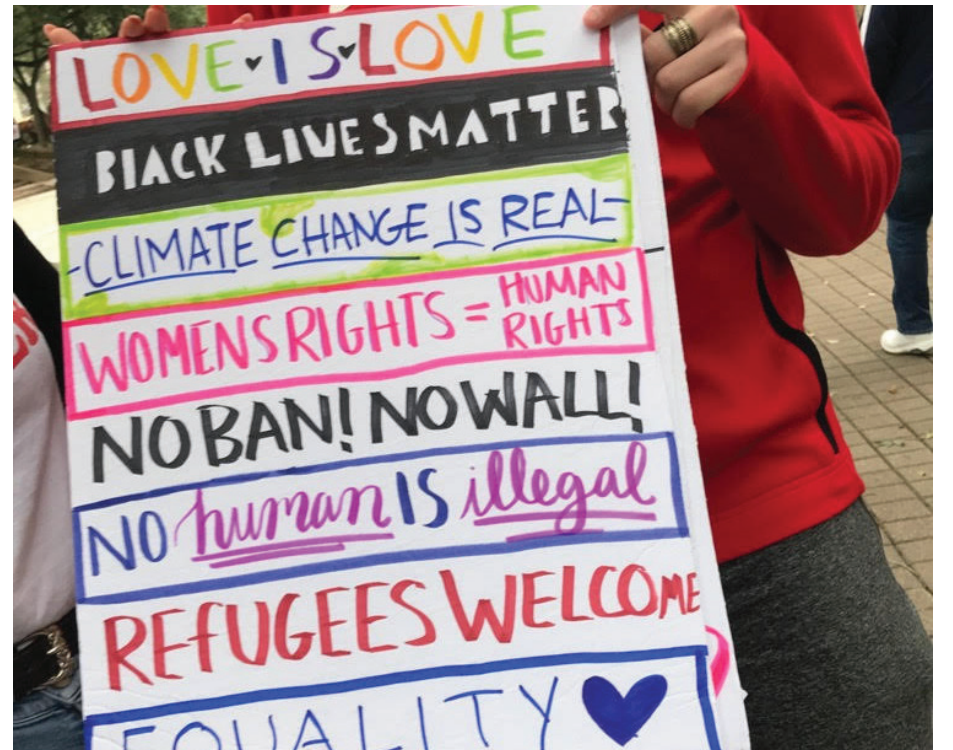 LOVE IS LOVE
BLACK LIVES MATTER
-CLIMATE CHANGE IS REAL-
WOMENS RIGHTS = HUMAN RIGHTS
NO BAN! NO WALL!
NO human IS illegal
REFUGEES WELCOME
EQUALITY